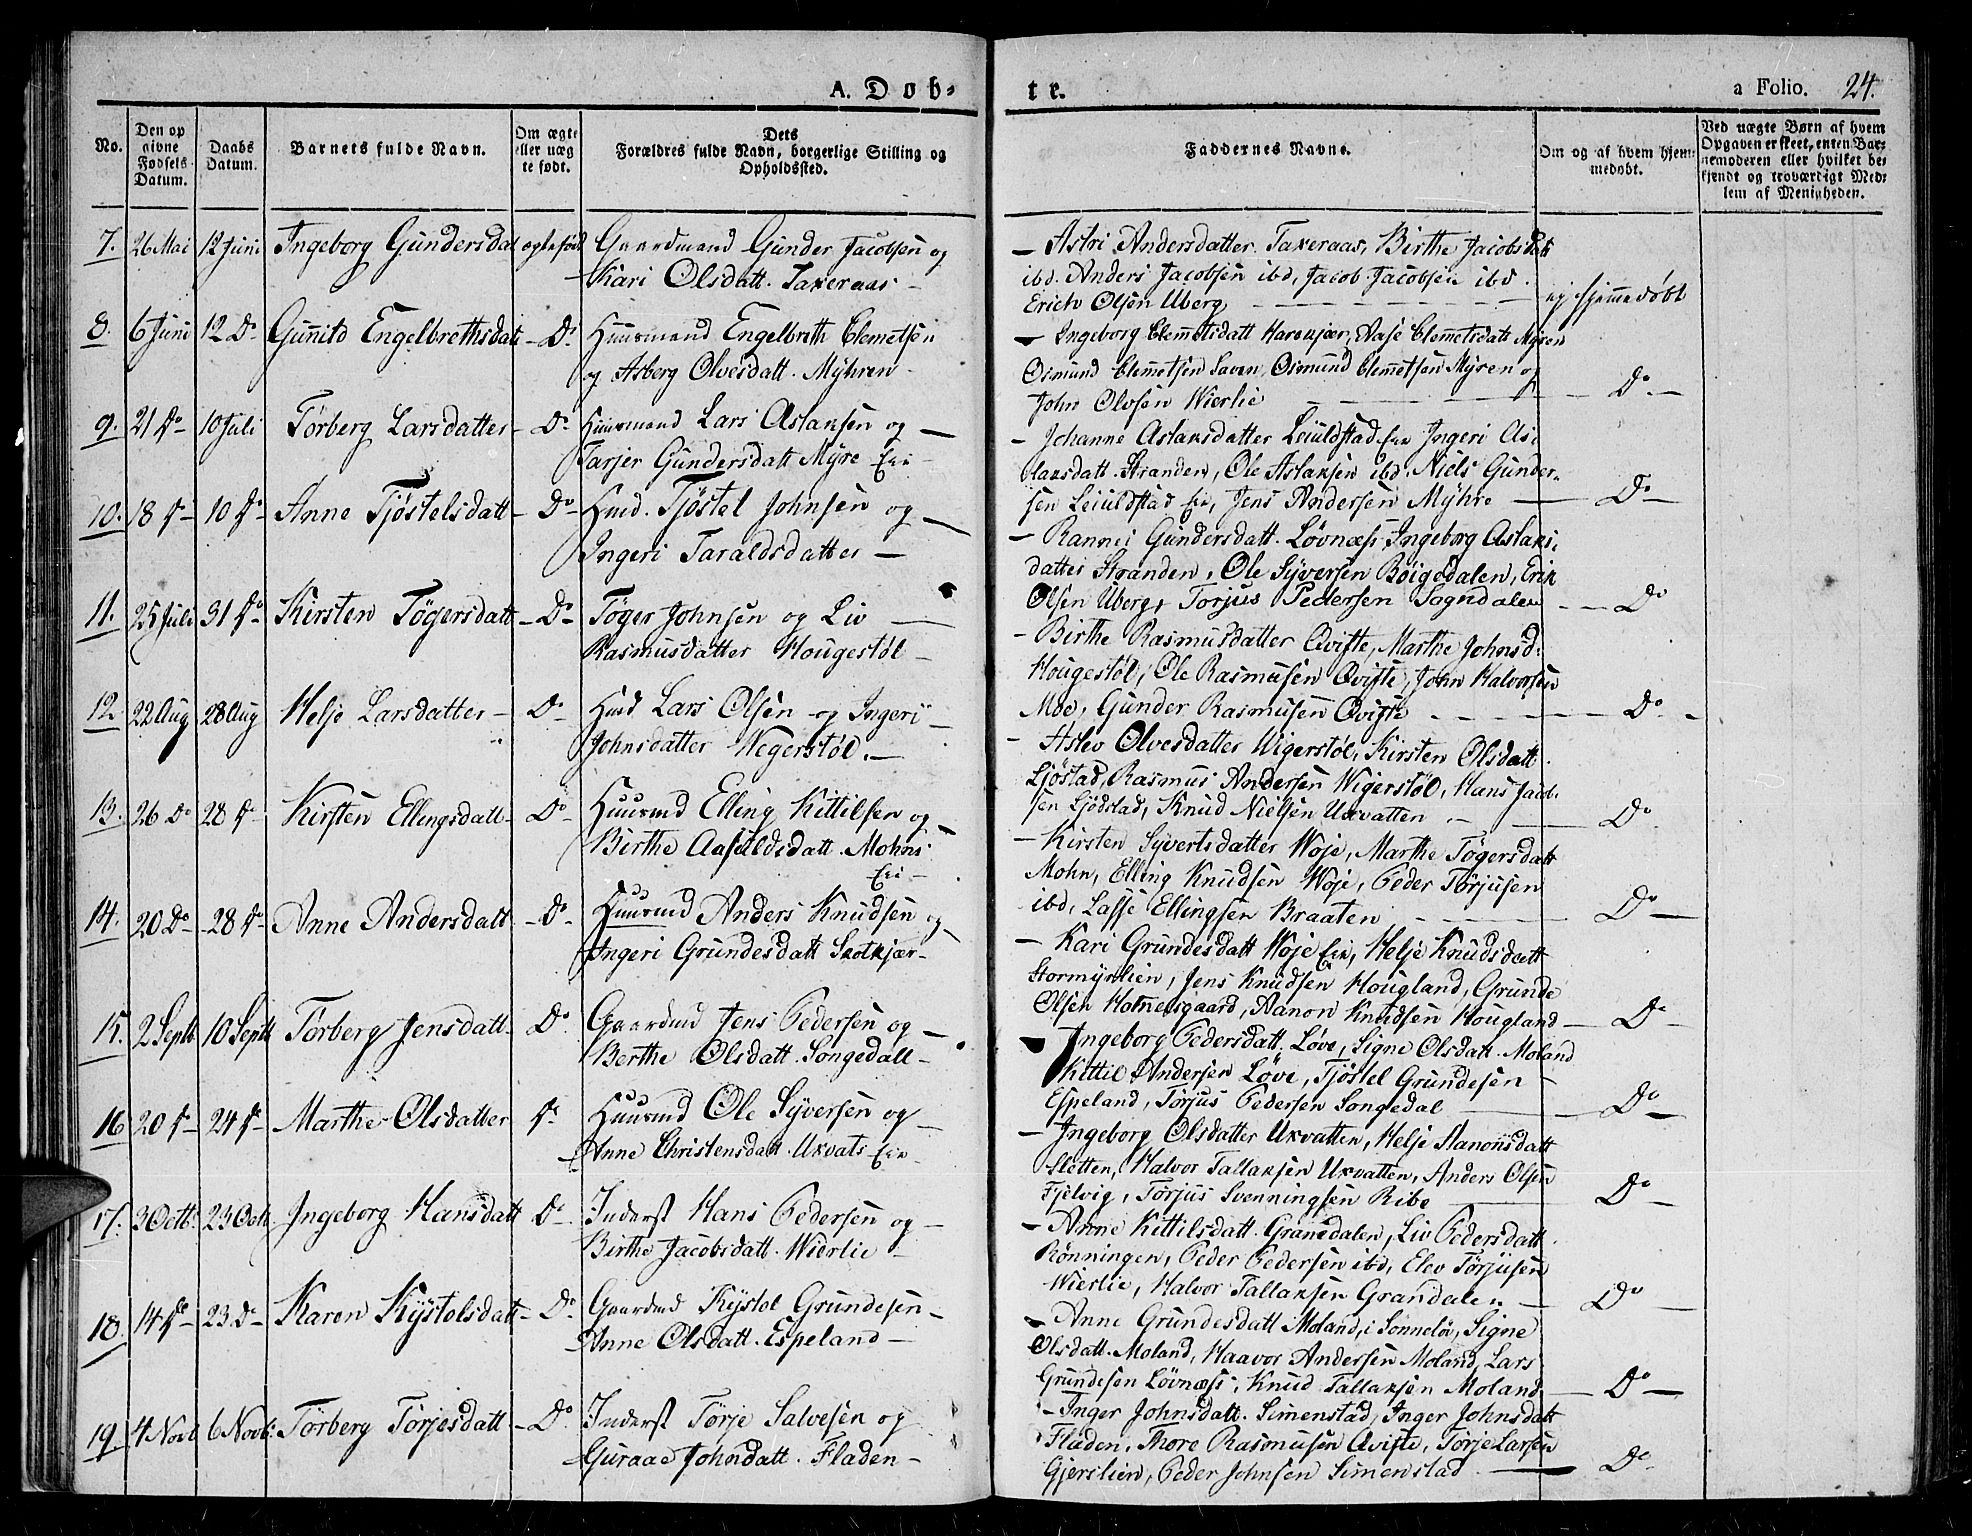 A. Døb-
tr.
a Folio. 24.
No.
Den op
givne
Fødsels
Datum.
Daabs
Datum.
Barnets fulde Navn.
Om ægte
eller uæg
te født.
Dets
Forældres fulde Navn, borgerlige Stilling og
Opholdssted.
Faddernes Navne.
Om og af hvem hjem
medøbt.
Ved uægte Børn af hvem
Opgaven er skeet, enten Bar-
nemoderen eller hvilket be
kjendt og troværdigt Med-
lem af Menigheden.
7. 26 Mai 12 Juni Ingeborg Gundersdat ægtefød Gaardmand Gunder Jacobsen og
Kari Olsdatt. Taxeraas -
- Astri Andersdatter Taxeraas, Birthe Jacobsdatt
ibd. Anders Jacobsen ibd, Jacob Jacobsen ibd.
Erich Olsen Uberg - ej hjemmedøbt
8. 6 Juni 12 Do Gunild Engelbrethsdatt - Do. Huusmand Engelbreth Clemetsen
og Asberg Olvesdatt. Myhren -
- Ingeborg Clemetsdatt Harekjær, Aase Clemetsdatt Myren
Osmund Clemetsen Saven, Osmund Clemetsen Myren og
John Olvsen Wierlie - Do -
9. 21 Do 10 Juli Torberg Larsdatter - Do. Huusmand Lars Aslaksen og -
Tarjer Gundersdatt Myre Eie -
- Johanne Aslaksdatter Leiuldstad Eie Ingeri As-
laksdatt. Stranden, Ole Aslaksen ibd. Niels Gunder-
sen Leiuldstad Eie, Jens Andersen Myhre - Do -
10. 18 Do 10 Do Anne Tjøstelsdatt - Do Hmd. Tjøstel Johnsen og -
Ingeri Taraldsdatter -
- Rannei Gundersdatt. Løvnæss, Ingeborg Aslaks-
datter Stranden, Ole Syversen Bøigedalen, Erik
Olsen Uberg, Torjus Pedersen Sogndalen - Do
11. 25 Juli 31 Do Kirsten Tøgersdatt - Do - Tøger Johnsen og Liv -
Rasmusdatter Hougestøl -
- Birthe Rasmusdatter Qviste, Marthe Johnsd.
Hougestøl, Ole Rasmusen Qviste, John Halvorsen
Moe, Gunder Rasmusen Qviste - Do -
12. 22 Aug 28 Aug Helje Larsdatter - Do - Hmd Lars Olsen og Ingeri -
Johnsdatter Wegerstøl. -
- Aslev Olvesdatter Wigerstøl, Kirsten Olsdatt.
Ljøstad, Rasmus Andersen Wigerstøl, Hans Jacob-
sen Ljødstad, Knud Nielsen Uxvatten - Do.
13. 26 Do 28 Do Kirsten Ellingsdatt - Do - Huusmd Elling Kittilsen og -
Birthe Aasuldsdatt. Mohns
Eie -
- Kirsten Syvertsdatter Woje, Marthe Tøgersdatt
Mohn, Elling Knudsen Woje, Peder Torjusen
ibd, Lasse Ellingsen Braaten - Do -
14. 20 Do 28 Do Anne Andersdatt - Do - Huusmd Anders Knudsen og -
Ingeri Grundesdatt Skotkjær -
- Kari Grundesdatt Woje Eie, Helje Knudsdatt
Stormyrlien, Jens Knudsen Hougland, Grunde
Olsen Holnesgaard, Aanon Knudsen Hougland - Do -
15. 2 Septb 10 Septb Torberg Jensdatt. Do. Gaardmd Jens Pedersen og -
Berthe Olsdatt. Songedall -
Ingeborg Pedersdatt. Løve, Signe Olsdatt. Moland
Kittil Andersen Løve, Tjøstel Grundesen -
Espeland, Torjus Pedersen Songedal - Do -
16 20 Do 24 Do Marthe Olsdatter Do Huusmd Ole Syversen og -
Anne Christensdatt. Uxvats Eie -
- Ingeborg Olsdatter Uxvatten, Helje Aanonsdatt
Sletten, Halvor Tallaksen Uxvatten, Anders Olsen
Fjelvig, Torjus Svenningsen Ribe - Do -
17. 3 Octb. 23 Octb Ingeborg Hansdatt Do - Inderst Hans Pedersen og -
Birthe Jacobsdatt. Wierlie -
- Anne Kittilsdatt. Granedalen, Liv Pedersdatt.
Rønningen, Peder Pedersen ibd, Elev Torjusen
Wierlie, Halvor Tallaksen Grandalen - Do -
18. 14 Do 23 Do Karen Kystelsdatt - Do. Gaardmd Kystel Grundesen -
Anne Olsdatt. Espeland -
- Anne Grundesdatt Moland, i Sønneløv, Signe
Olsdatt. Moland, Haavor Andersen Moland, Lars
Grundesen Løvnæss, Knud Tallaksen Moland - Do -
19 4 Novb 6 Novb: Torberg Torjesdatt - Do Inderst Torje Salvesen og
Guraae Johndatt. Fladen -
- Inger Johnsdatt. Simenstad, Inger Johnsdatt
Fladen, Thore Rasmusen Qviste, Torje Larsen
Gjerslien, Peder Johnsen Simenstad - Do -